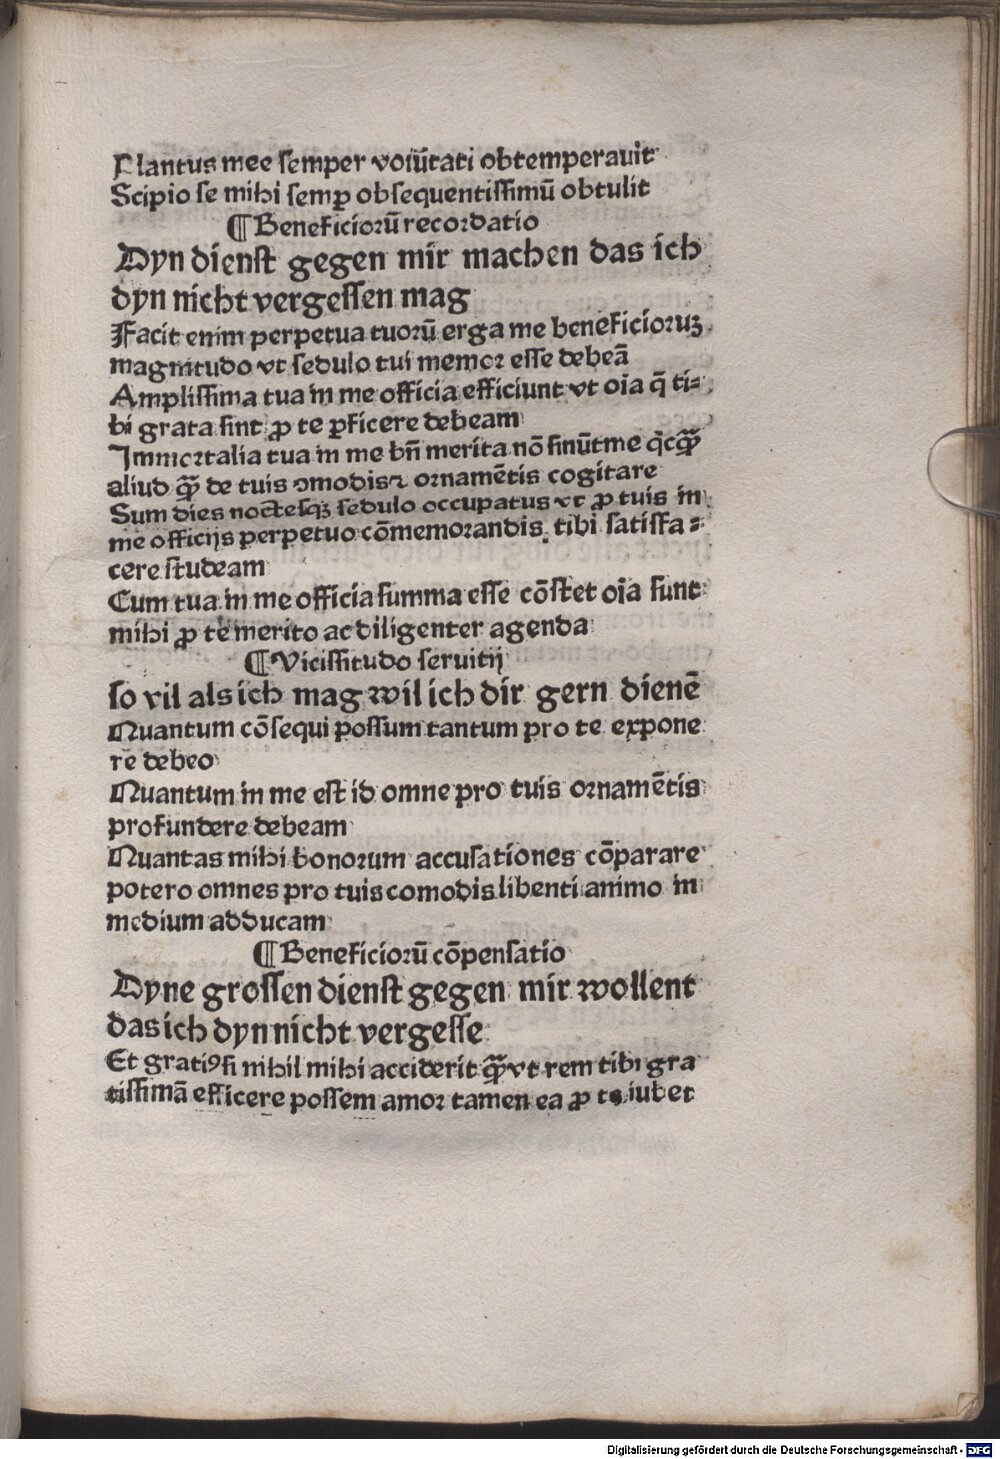 Plantus mee semper volūtati obtemperavit
Scipio se mihi semꝑ obsequentissimū obtulit
¶ Beneficiorū recordatio
Dyn dienst gegen mir machen das ich
dyn nicht vergessen mag
Facit enim perpetua tuorū erga me beneficioruꝫ
magnitudo vt sedulo tui memor esse debeā
Amplissima tua in me officia efficiunt vt oīa q̄ ti⸗
bi grata sint ꝓ te ꝑficere debeam
Immortalia tua in me bn̄ merita nō sinūt me qͥcꝙ̄
aliud ꝙ̄ de tuis ꝯmodis ⁊ ornamētis cogitare
Sum dies noctesqꝫ sedulo occupatus vt ꝓ tuis in
me officijs perpetuo cōmemorandis tibi satisfa⸗
cere studeam
Cum tua in me officia summa esse cōstet oīa sunt
mihi ꝓ te merito ac diligenter agenda
¶ Vicissitudo seruitij
so vil als ich mag wil ich dir gern dienē
Quantum cōsequi possum tantum pro te expone
re debeo
Quantum in me est id omne pro tuis ornamētis
profundere debeam
Quantas mihi bonorum accusationes cōparare
potero omnes pro tuis comodis libenti animo in
medium adducam
¶ Beneficiorū cōpensatio
Dyne grossen dienst gegen mir wollent
das ich dyn nicht vergesse
Et gratiꝰ si nihil mihi acciderit ꝙ̄ vt rem tibi gra
tissimā efficere possem amor tamen ea ꝓ te iubet
Digitalisierung gefördert durch die Deutsche Forschungsgemeinschaft - DFG